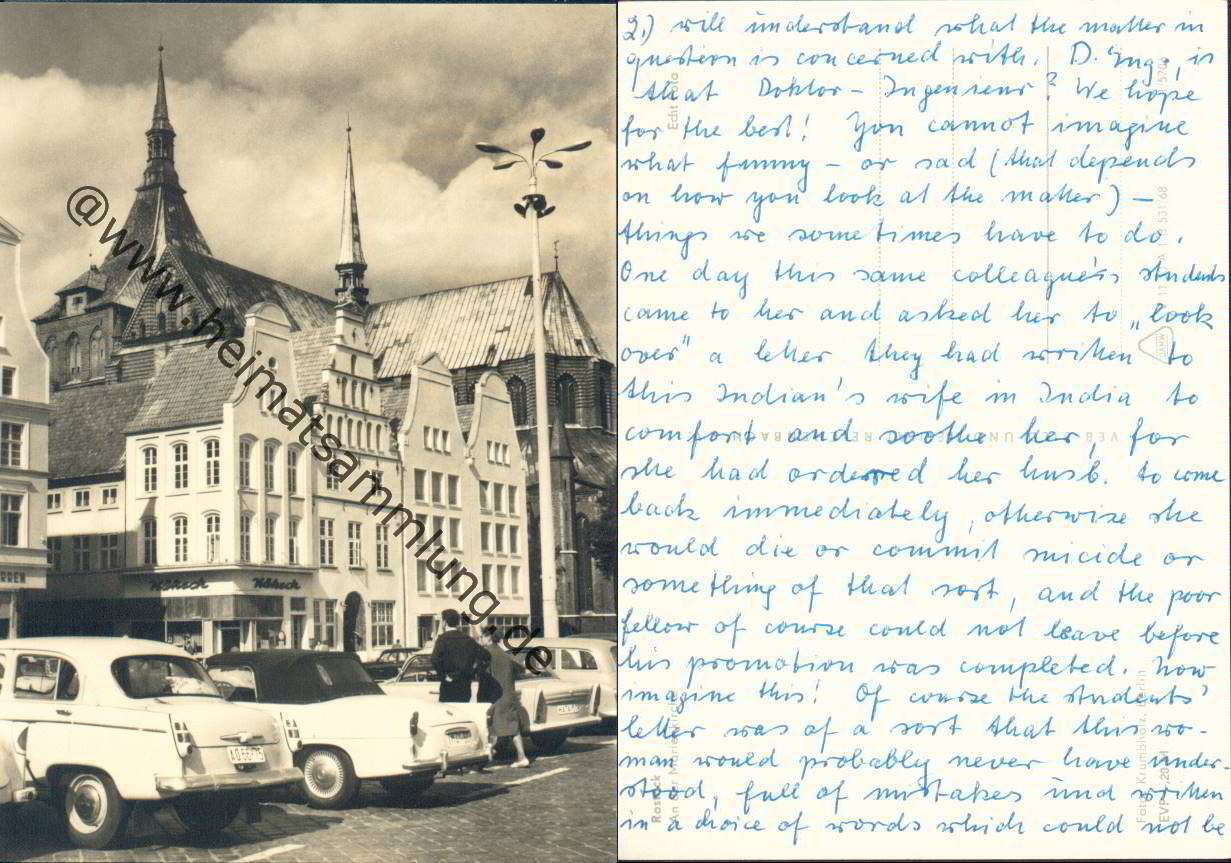 @www.heimatsammlung.de
RREN
Nöbeck
Nöbeck
AO 66-75
2.) will understand what the matter in
question is concerned with. D. Ing., is
that Doktor-Ingenieur? We hope
for the best! You cannot imagine
what funny - or sad (that depends
on how you look at the matter) -
things we sometimes have to do.
One day this same colleague's students
came to her and asked her to „look
over" a letter they had written to
this Indian's wife in India to
comfort and soothe her, for
she had ordered her husb. to come
back immediately, otherwise she
would die or commit suicide or
something of that sort, and the poor
fellow of course could not leave before
his promotion was completed. Now
imagine this! Of course the students'
letter was of a sort that this wo-
man would probably never have under-
stood, full of mistakes und written
in a choice of words which could not be
Rostock
An der Marienkirche
Echt Foto
Foto: Krumbholz, Berlin